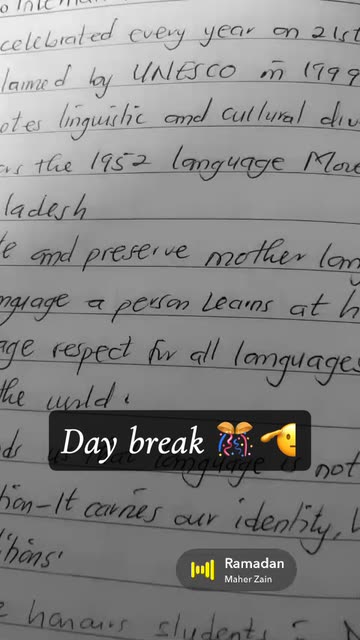 celebrated every year on 21st
claimed by UNESCO in 1999
otes linguistic and cultural div
the 1952 language Move
ladesh
te and preserve mother lan
nguage a person Learns at h
age respect for all languages
the world.
Day break 🎊🫡
ds language is not
tion-It carries our identity,
itions'
Ramadan
Maher Zain
honours students